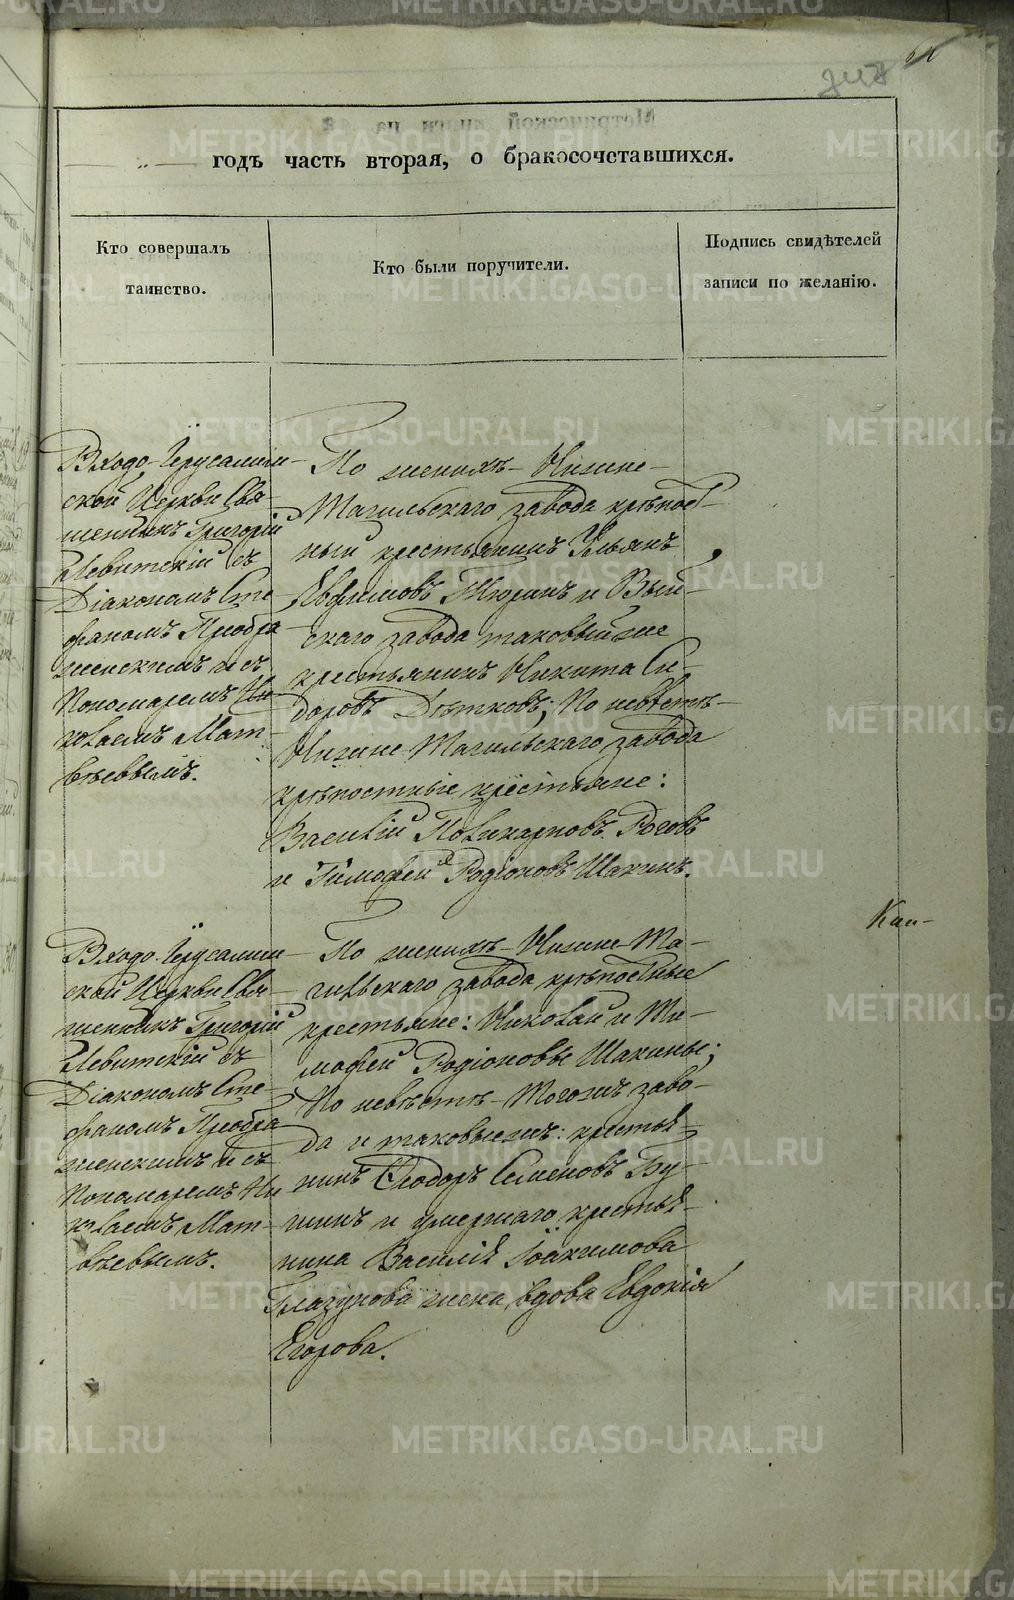 годъ часть вторая, о бракосочетавшихся.
Кто совершалъ
таинство.
Кто были поручители.
Подпись свидѣтелей
записи по желанію.
Входо-Іерусалим-
ской Церкви Свя-
щенникъ Григорій
Левитскій съ
Діакономъ Сте-
фаномъ Преобра-
женскимъ и съ
Пономаремъ Ни-
колаемъ Мат-
вѣевымъ.
По женихѣ – Нижне-
Тагильскаго завода крѣпост-
ный крестьянинъ Ульянъ
Евфимовъ Тюринъ и Вый-
скаго завода таковый же
крестьянинъ Никита Си-
доровъ Дѣтковъ; По невѣстѣ –
Нижне-Тагильскаго завода
крѣпостные крестьяне:
Василій Поликарповъ Роговъ
и Тимофей Родіоновъ Шакинъ.
Входо-Іерусалим-
ской Церкви Свя-
щенникъ Григорій
Левитскій съ
Діакономъ Сте-
фаномъ Преобра-
женскимъ и съ
Пономаремъ Ни-
колаемъ Мат-
вѣевымъ.
По женихѣ – Нижне-Та-
гильскаго завода крѣпостные
крестьяне: Николай и Ти-
мофей Родіоновы Шакины;
По невѣстѣ – Тогожъ заво-
да и таковыежъ: крестья-
нинъ Ѳеодоръ Семеновъ Бу-
шинъ и умершаго крестья-
нина Василія Іоакимова
Глазунова жена, вдова Евдокія
Егорова.
METRIKI.GASO-URAL.RU